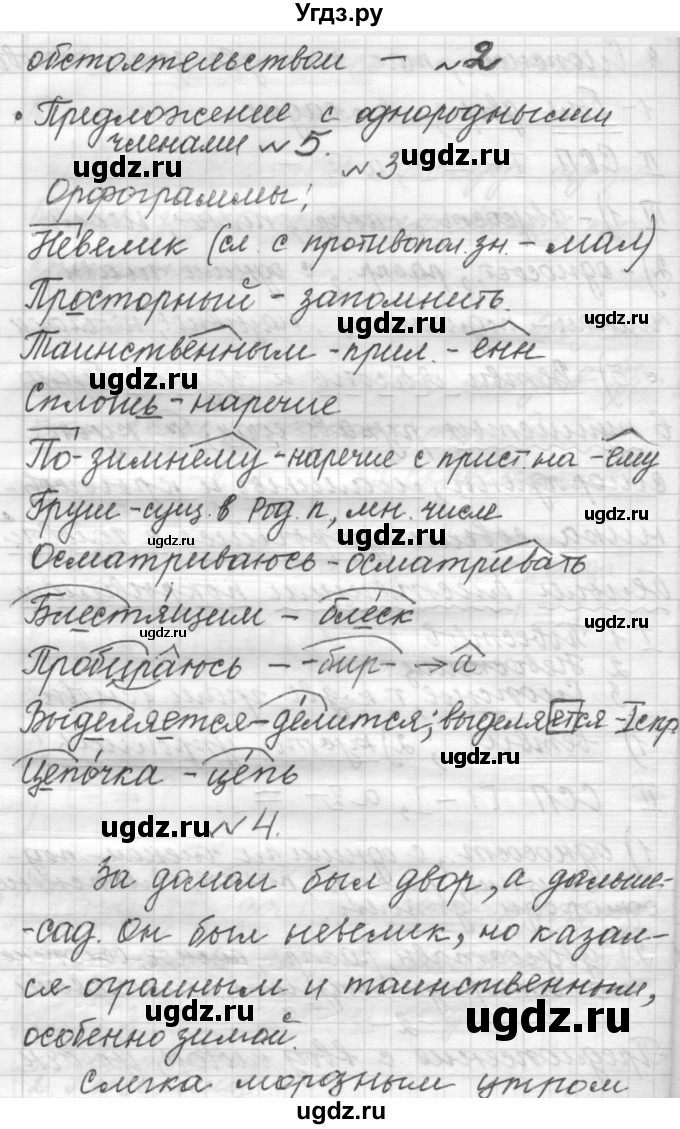 Угдз.ру
обстоятельством – №2
• Предложение с однородными
членами №5.
ugdz.ru ugdz.ru
№3
Орфограммы:
Невелик (сл. с противопол. зн. – мал)
Просторный – запомнить.
ugdz.ru ugdz.ru
Таинственным – прил. – енн
ugdz.ru
Сплошь – наречие
По-зимнему – наречие с прист. на -ему
Груш – сущ. в Род. п, мн. числе
ugdz.ru ugdz.ru ugdz.ru
Осматриваюсь – осматривать
Блестящим – блеск
ugdz.ru ugdz.ru
Пробираюсь – -бир- → а
Выделяется – делится; выделяется – I спр.
Цепочка – цепь
ugdz.ru
№4.
За домом был двор, а дальше –
-сад. Он был невелик, но казал-
ся огромным и таинственным,
ugdz.ru ugdz.ru
особенно зимой.
Слегка морозным утром
ugdz.ru